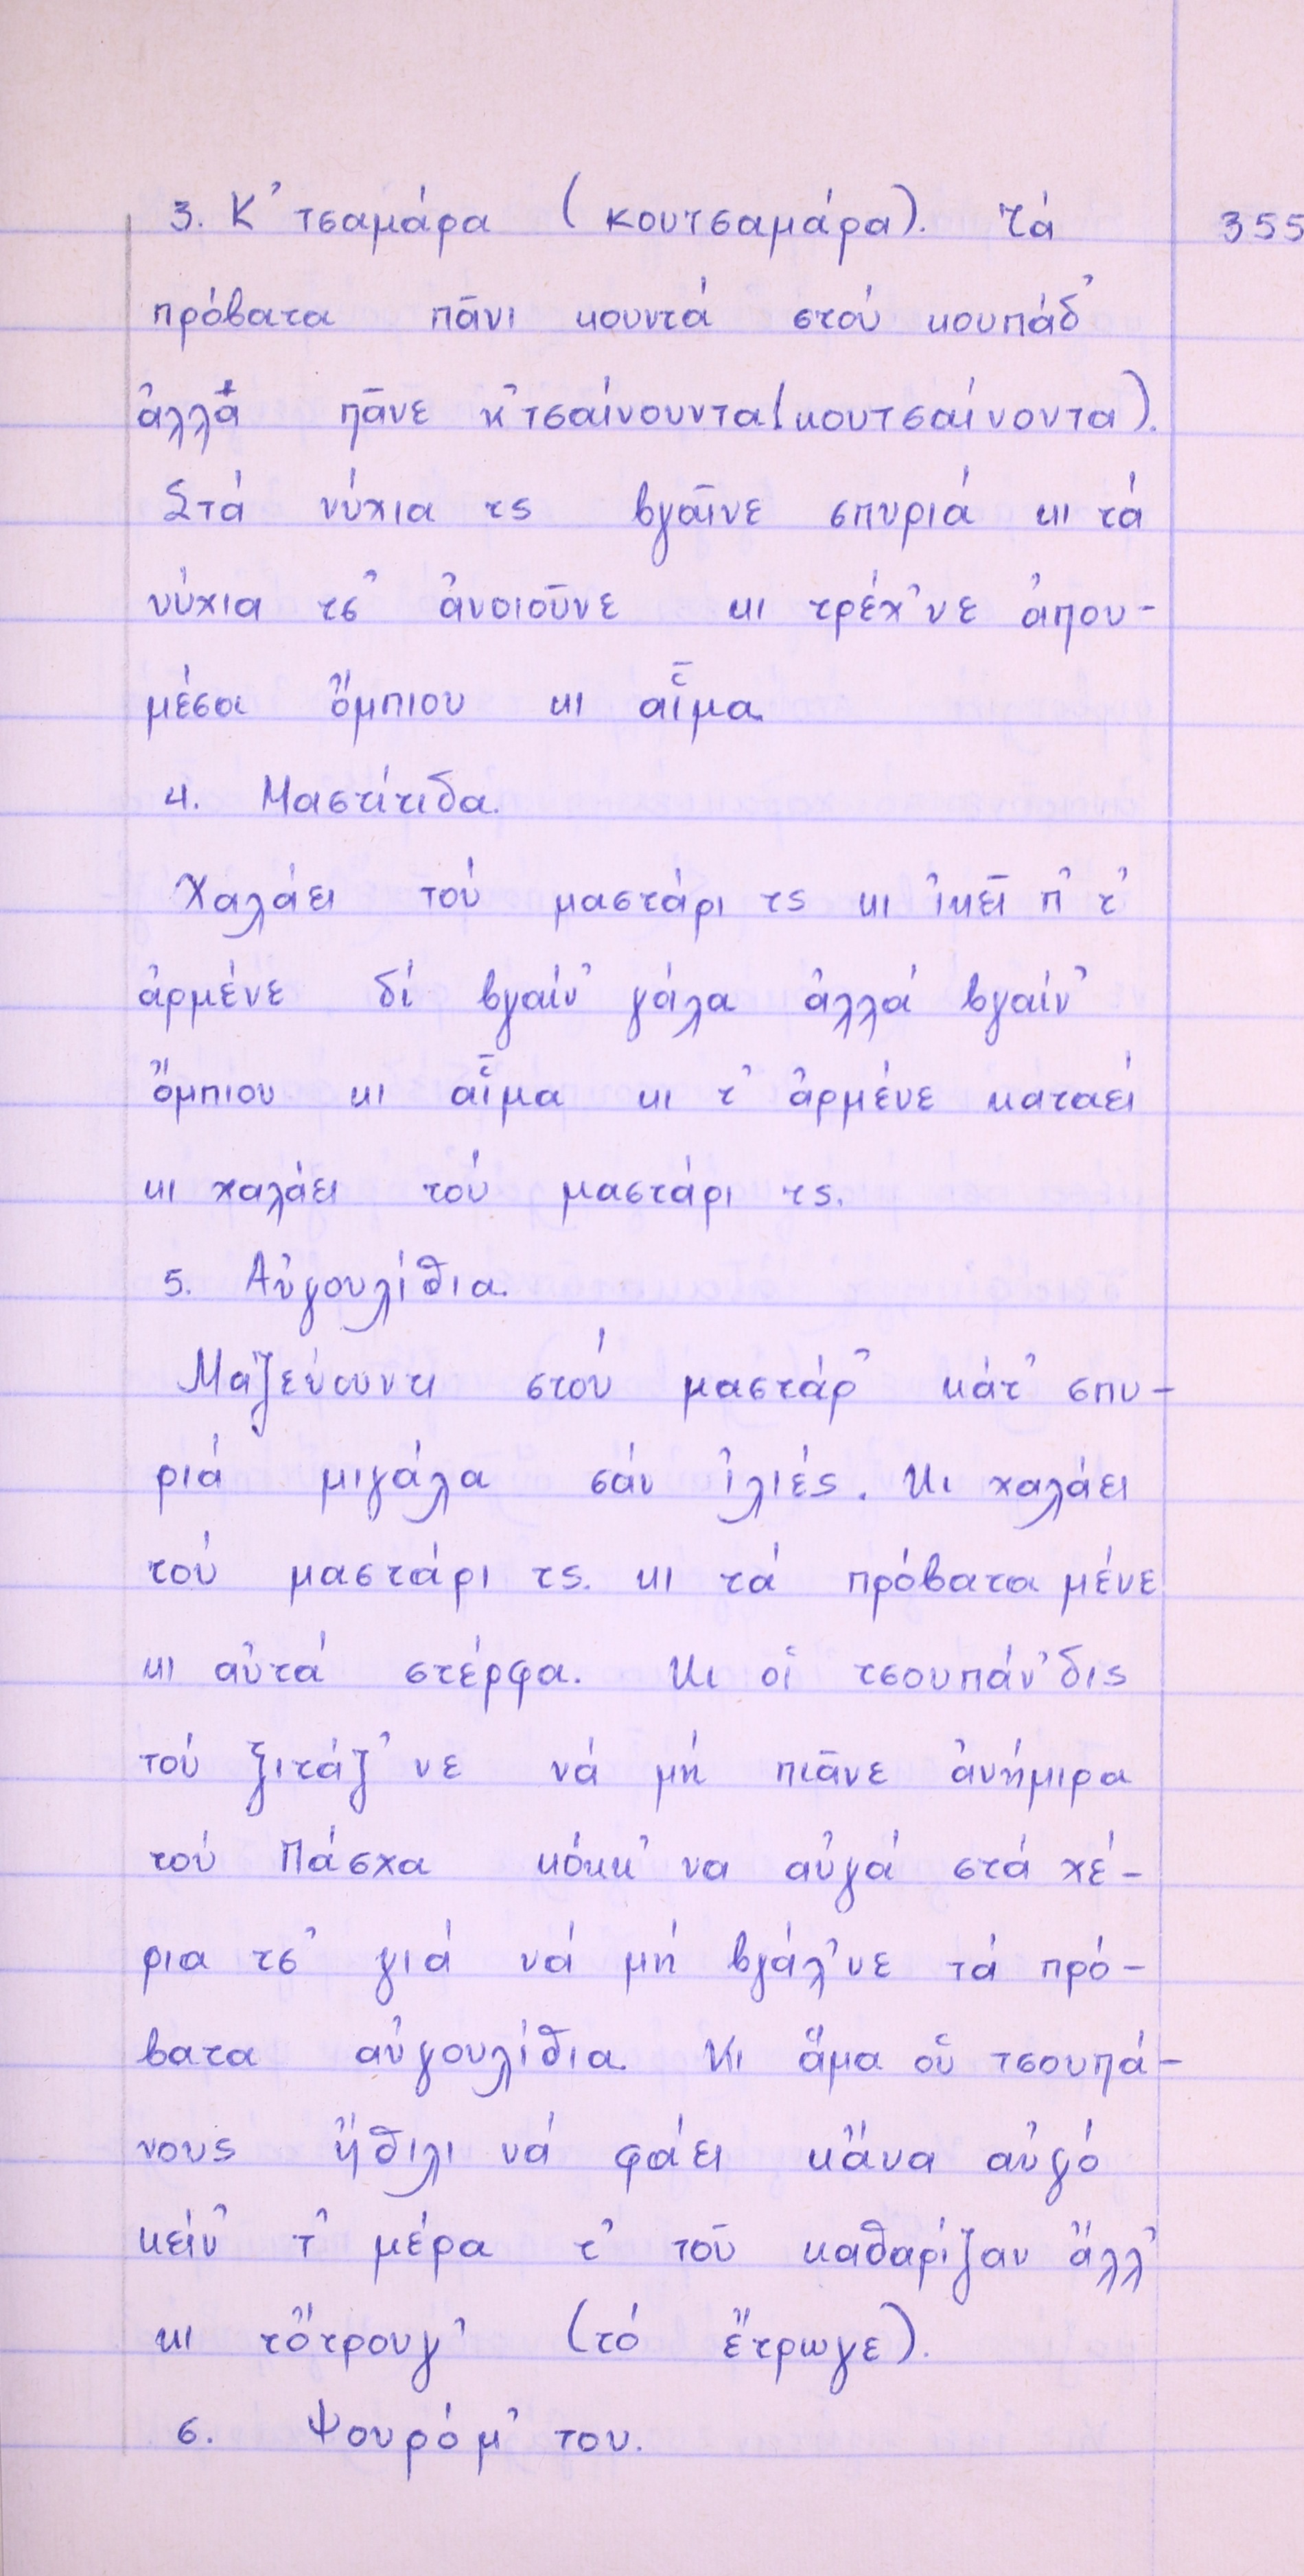 3. Κ᾿ τσαμάρα (κουτσαμάρα). Τά 355
πρόβατα πᾶνι κουντά στού κουπάδ᾿
ἀλλά πᾶνε κ᾿τσαίνουντα(κουτσαίνοντα).
Στά νύχια τς βγαῖνε σπυριά κι τά
νύχια τσ᾿ ἀνοιοῦνε κι τρέχ᾿νε ἀπου-
μέσα ὄμπιου κι αἷμα
4. Μαστίτιδα.
Χαλάει τού μαστάρι τς κι ἰκεῖ π᾿ τ᾿
ἀρμένε δί βγαίν᾿ γάλα ἀλλά βγαίν᾿
ὄμπιου κι αἷμα κι τ᾿ ἀρμένε καταεί
κι χαλάει τού μαστάρι τς.
5. Αὐγουλίθια.
Μαζεύουντι στού μαστάρ᾿ κάτ᾿ σπυ-
ριά μιγάλα σάν ἰλιές. Κι χαλάει
τού μαστάρι τς. κι τά πρόβατα μένε
κι αὐτά στέρφα. Κι οἱ τσουπάν᾿δις
τού ξιτάζ᾿νε νά μή πιᾶνε ἀνήμιρα
τού Πάσχα κόκκ᾿να αὐγά στά χέ-
ρια τσ᾿ γιά νά μή βγάλ᾿νε τά πρό-
βατα αὐγουλίθια. Κι ἅμα οὑ τσουπά-
νους ἤθιλι νά φάει κἄνα αὐγό
κείν᾿ τ᾿ μέρα τ᾿ τοῦ καθαρίζαν ἄλλ᾿
κι τὄτρουγ᾿ (τό ἔτρωγε).
6. Ψουρόμ᾿του.